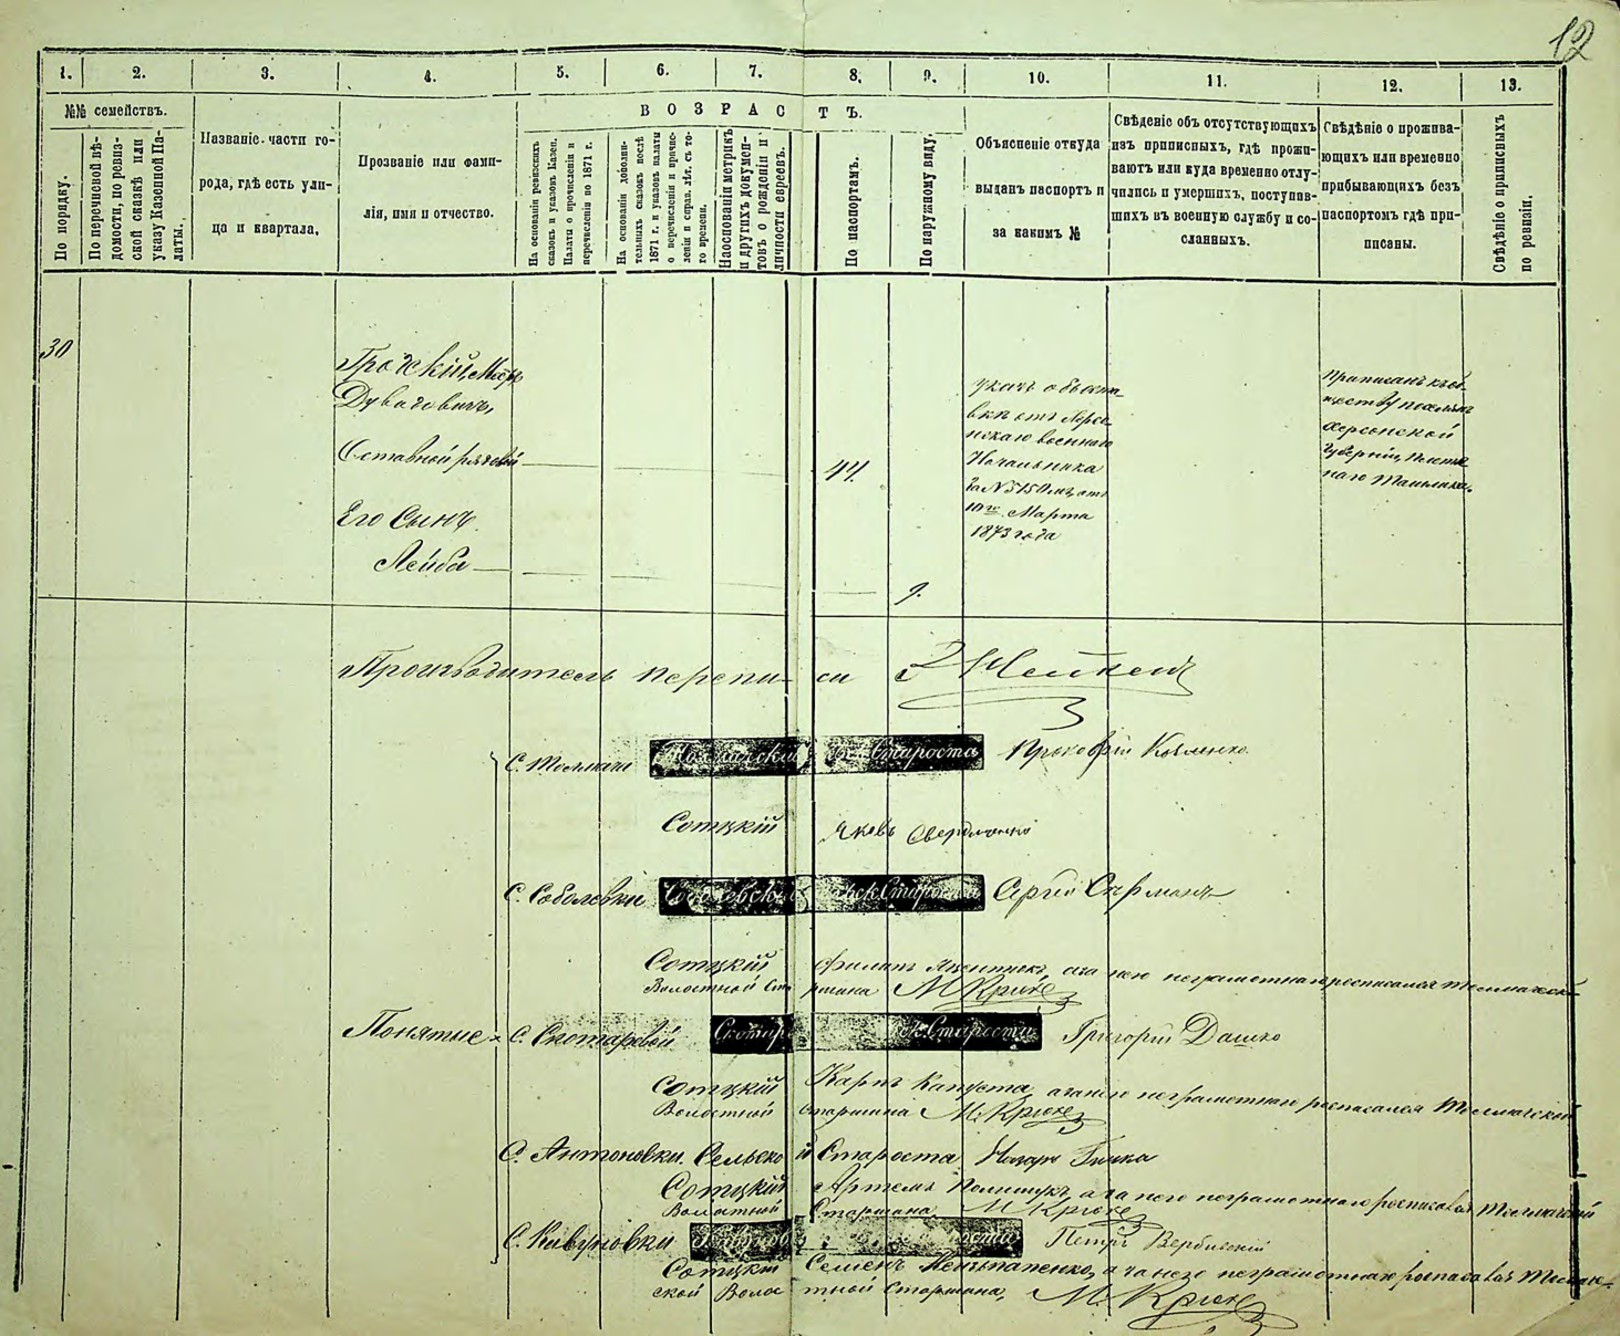 12
1.
2.
3.
4.
5.
6.
7.
8.
9.
10.
11.
12.
13.
№№ семействъ.
По порядку.
По перечисной вѣ-
домости, по ревиз-
ской сказкѣ или
указу Казенной Па-
латы.
Названіе части го-
рода, гдѣ есть ули-
ца и квартала.
Прозваніе или фами-
лія, имя и отчество.
ВОЗРАСТЪ.
На основаніи ревизскихъ
сказокъ и указовъ Казен.
Палаты о причисленіи и
перечисленіи по 1871 г.
На основаніи дополни-
тельныхъ сказокъ послѣ
1871 г. и указовъ палаты
о перечисленіи и причис-
леніи и справ. лѣт. съ то-
го времени.
На основаніи метрикъ
и другихъ докумен-
товъ о рожденіи и
личности евреевъ.
По паспортамъ.
По наружному виду.
Объясненіе откуда
выданъ паспортъ и
за какимъ №
Свѣденіе объ отсутствующихъ
изъ приписныхъ, гдѣ прожи-
ваютъ или куда временно отлу-
чились и умершихъ, поступив-
шихъ въ военную службу и со-
сланныхъ.
Свѣдѣніе о прожива-
ющихъ или временно
прибывающихъ безъ
паспортомъ гдѣ при-
писаны.
Свѣдѣніе о приписныхъ
по ревизіи.
30
Дувидовичъ,
Отставной рядовой
44.
Его Сынъ
Лейба
9.
Указъ объ отста-
вкѣ отъ Херсо-
нскаго военнаго
Начальника
За № 5150мъ, отъ
10го Марта
1873 года
Приписанъ къ об-
ществу
Херсонской
Губерніи,
Производитель переписи
С. Толмача
Староста
Прокофій
Сотцкій Яковъ
С. Соболевки Соболевскій Сельск. Староста Сергій
Сотцкій Филипъ а за него неграмотнаго росписался
Волостной Старшина М Крюкъ
Понятые
С. Скотаревой Староста Григорій Дашко
Сотцкій Карпъ Капуста, а за него неграмотнаго росписался Толмачской
Волостной Старшина М. Крюкъ
С. Антоновки. Сельской Староста
Сотцкій Артемъ Полищукъ, а за него неграмотнаго росписался Толмачской
Волостной Старшина М Крюкъ
С. Кавуновки Староста Петръ
Сотцкій Семенъ а за него неграмотнаго росписался Толмач-
ской Волостной Старшина, М. Крюкъ